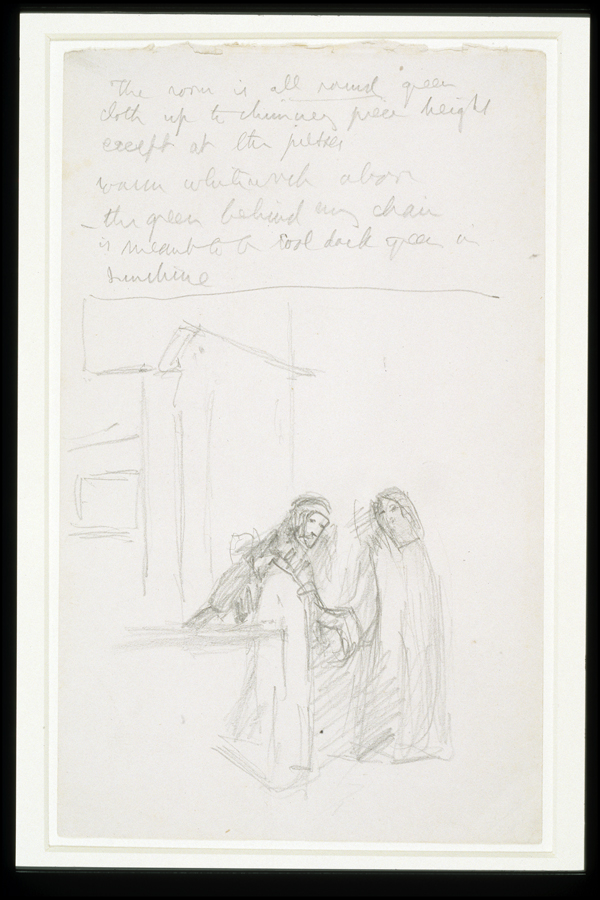 The room is all round green
cloth up to chimney piece height
except at the
warm whitewash above
- the green behind my chair
is meant to be cool dark green in
sunshine